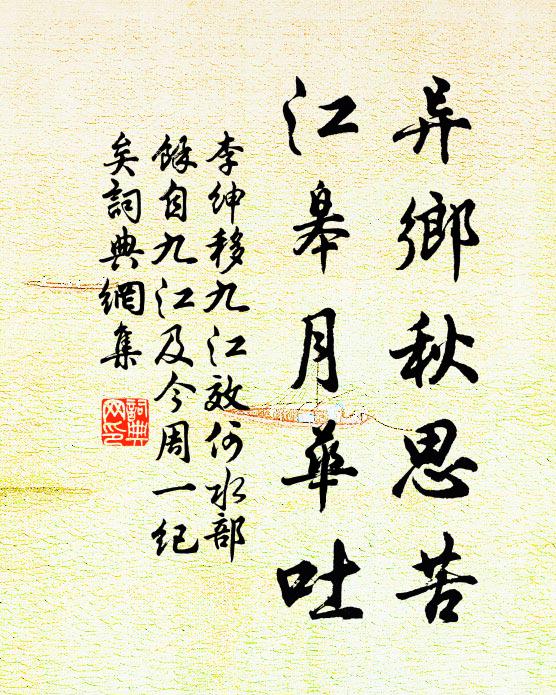 异鄉秋思苦
江皋月華吐
李绅移九江效何水部
餘自九江及今周一纪
矣詞典網集
詞典
网印